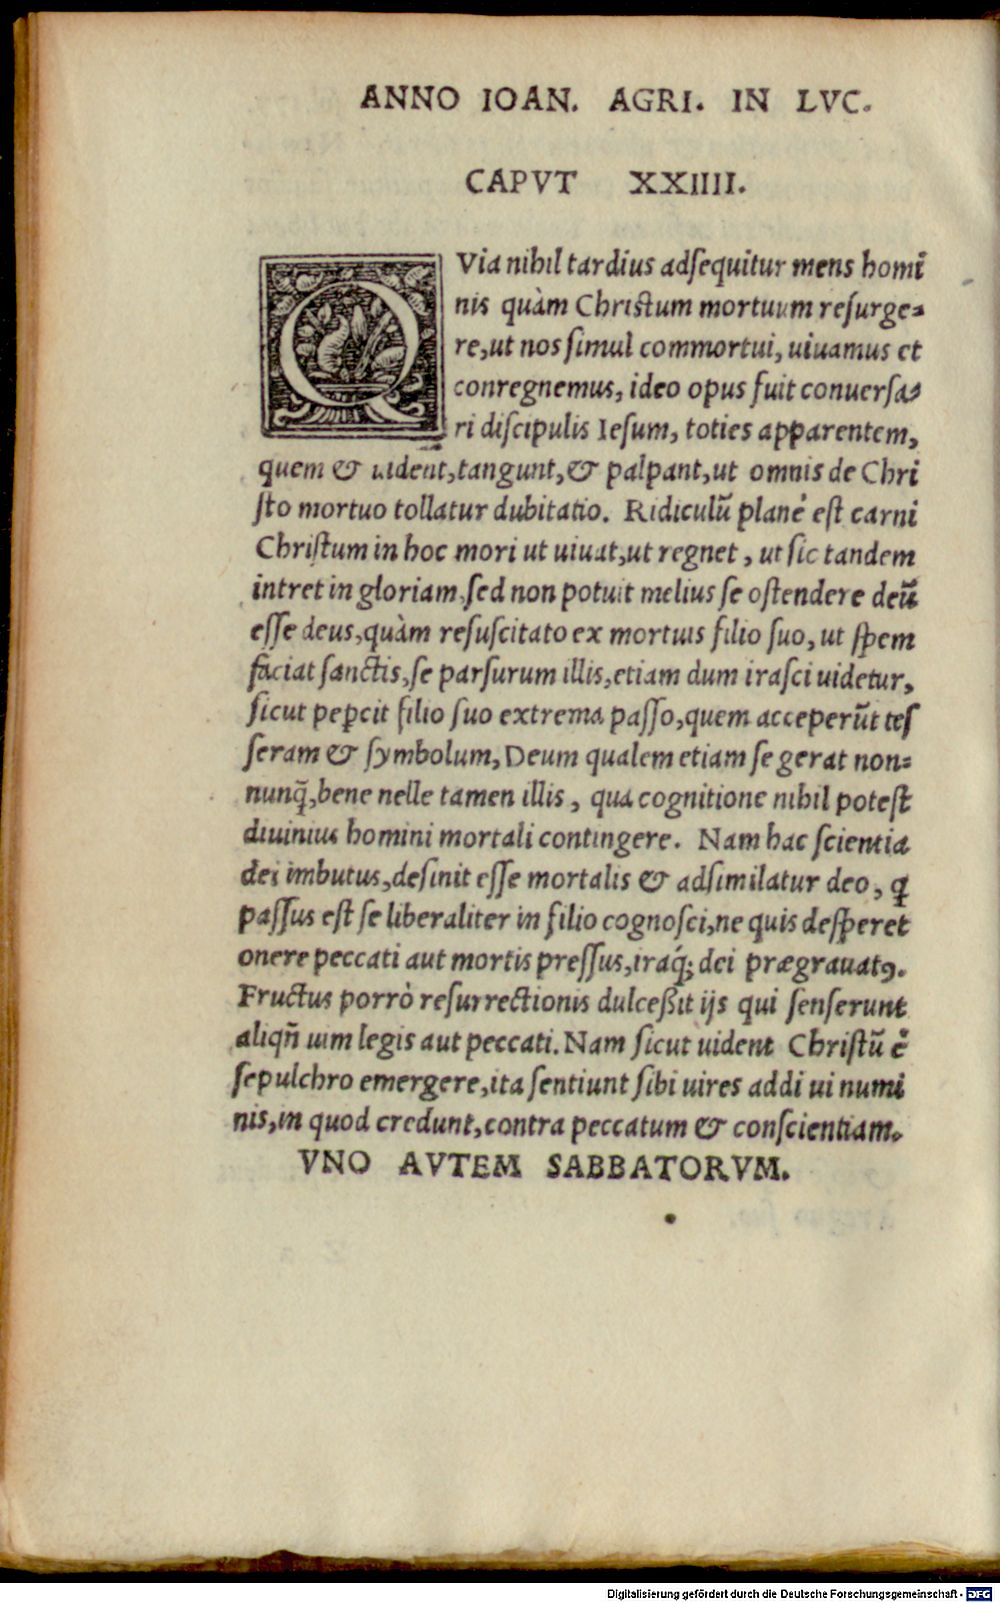 ANNO IOAN. AGRI. IN LVC.
CAPVT XXIIII.
QVia nihil tardius adsequitur mens homĩ
nis quàm Christum mortuum resurge=
re, ut nos simul commortui, uiuamus et
conregnemus, ideo opus fuit conuersa=
ri discipulis Iesum, toties apparentem,
quem & uident, tangunt, & palpant, ut omnis de Chri
sto mortuo tollatur dubitatio. Ridiculũ planè est carni
Christum in hoc mori ut uiuat, ut regnet, ut sic tandem
intret in gloriam, sed non potuit melius se ostendere deũ
esse deus, quàm resuscitato ex mortuis filio suo, ut spem
faciat sanctis, se parsurum illis, etiam dum irasci uidetur,
sicut pepercit filio suo extrema passo, quem acceperũt tes
seram & symbolum, Deum qualem etiam se gerat non=
nunq̃, bene nelle tamen illis, qua cognitione nihil potest
diuinius homini mortali contingere. Nam hac scientia
dei imbutus, desinit esse mortalis & adsimilatur deo, q̃
passus est se liberaliter in filio cognosci, ne quis desperet
onere peccati aut mortis pressus, iraq́; dei prægrauatꝰ.
Fructus porrò resurrectionis dulceßit ijs qui senserunt
aliqñ uim legis aut peccati. Nam sicut uident Christũ è
sepulchro emergere, ita sentiunt sibi uires addi ui numi
nis, in quod credunt, contra peccatum & conscientiam.
VNO AVTEM SABBATORVM.
Digitalisierung gefördert durch die Deutsche Forschungsgemeinschaft - DFG